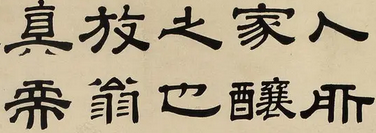 人所
家釀
之也
放翁
真